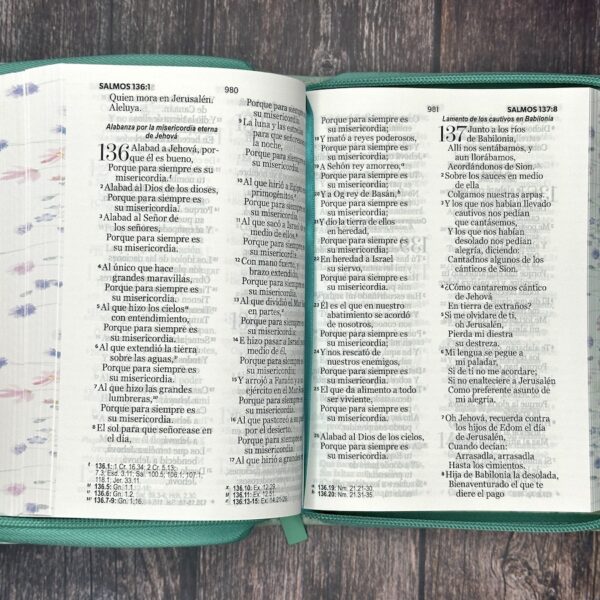 SALMOS 136:1
980
Quien mora en Jerusalén.
Aleluya.
Alabanza por la misericordia eterna
de Jehová
136 Alabad a Jehová, por-
que él es bueno,
Porque para siempre es
su misericordia.
2 Alabad al Dios de los dioses,
Porque para siempre es
su misericordia.
3 Alabad al Señor de
los señores,
Porque para siempre es
su misericordia.
4 Al único que hace
grandes maravillas,
Porque para siempre es
su misericordia.
5 Al que hizo los cielos
con entendimiento,
Porque para siempre es
su misericordia.
6 Al que extendió la tierra
sobre las aguas,
Porque para siempre es
su misericordia.
7 Al que hizo las grandes
lumbreras,
Porque para siempre es
su misericordia.
8 El sol para que señorease en
el día,
136.1: 1 Cr. 16.34; 2 Cr. 5.13;
7.3; Esd. 3.11; Sal. 100.5; 106.1; 107.1;
118.1; Jer. 33.11.
136.5: Gn. 1.1.
136.6: Gn. 1.2.
136.7-9: Gn. 1.16.
Porque para siempre es
su misericordia.
9 La luna y las estrellas
para que señoreasen
la noche,
Porque para siempre es
su misericordia.
10 Al que hirió a Egipto
primogénitos,
Porque para siempre es
su misericordia.
11 Al que sacó a Israel
medio de ellos
Porque para siempre es
su misericordia.
12 Con mano fuerte, y
brazo extendido,
Porque para siempre es
su misericordia.
13 Al que dividió el Mar
en partes,
Porque para siempre es
su misericordia;
14 E hizo pasar a Israel
medio de él,
Porque para siempre es
su misericordia;
15 Y arrojó a Faraón y a
ejército en el Mar
Porque para siempre es
su misericordia.
16 Al que pastoreó a su
por el desierto,
Porque para siempre es
su misericordia.
17 Al que hirió a grandes
136.10: Ex. 12.29.
136.11: Ex. 12.51.
136.13-15: Ex. 14.21-29.
981
SALMOS 137:8
Porque para siempre es
su misericordia;
18 Y mató a reyes poderosos,
Porque para siempre es
su misericordia;
19 A Sehón rey amorreo,
Porque para siempre es
su misericordia;
20 Y a Og rey de Basán,
Porque para siempre es
su misericordia;
21 Y dio la tierra de ellos
en heredad,
Porque para siempre es
su misericordia;
22 En heredad a Israel
su siervo,
Porque para siempre es
su misericordia.
23 Él es el que en nuestro
abatimiento se acordó
de nosotros,
Porque para siempre es
su misericordia;
24 Y nos rescató de
nuestros enemigos,
Porque para siempre es
su misericordia.
25 El que da alimento a todo
ser viviente,
Porque para siempre es
su misericordia.
26 Alabad al Dios de los cielos,
Porque para siempre es
su misericordia.
136.19: Nm. 21.21-30.
136.20: Nm. 21.31-35.
Lamento de los cautivos en Babilonia
137 Junto a los ríos
de Babilonia,
Allí nos sentábamos, y
aun llorábamos,
Acordándonos de Sion.
2 Sobre los sauces en medio
de ella
Colgamos nuestras arpas.
3 Y los que nos habían llevado
cautivos nos pedían
que cantásemos,
Y los que nos habían
desolado nos pedían
alegría, diciendo:
Cantadnos algunos de los
cánticos de Sion.
4 ¿Cómo cantaremos cántico
de Jehová
En tierra de extraños?
5 Si me olvidare de ti,
oh Jerusalén,
Pierda mi diestra
su destreza.
6 Mi lengua se pegue a
mi paladar,
Si de ti no me acordare;
Si no enalteciere a Jerusalén
Como preferente asunto de
mi alegría.
7 Oh Jehová, recuerda contra
los hijos de Edom el día
de Jerusalén,
Cuando decían:
Arrasadla, arrasadla
Hasta los cimientos.
8 Hija de Babilonia la desolada,
Bienaventurado el que te
diere el pago